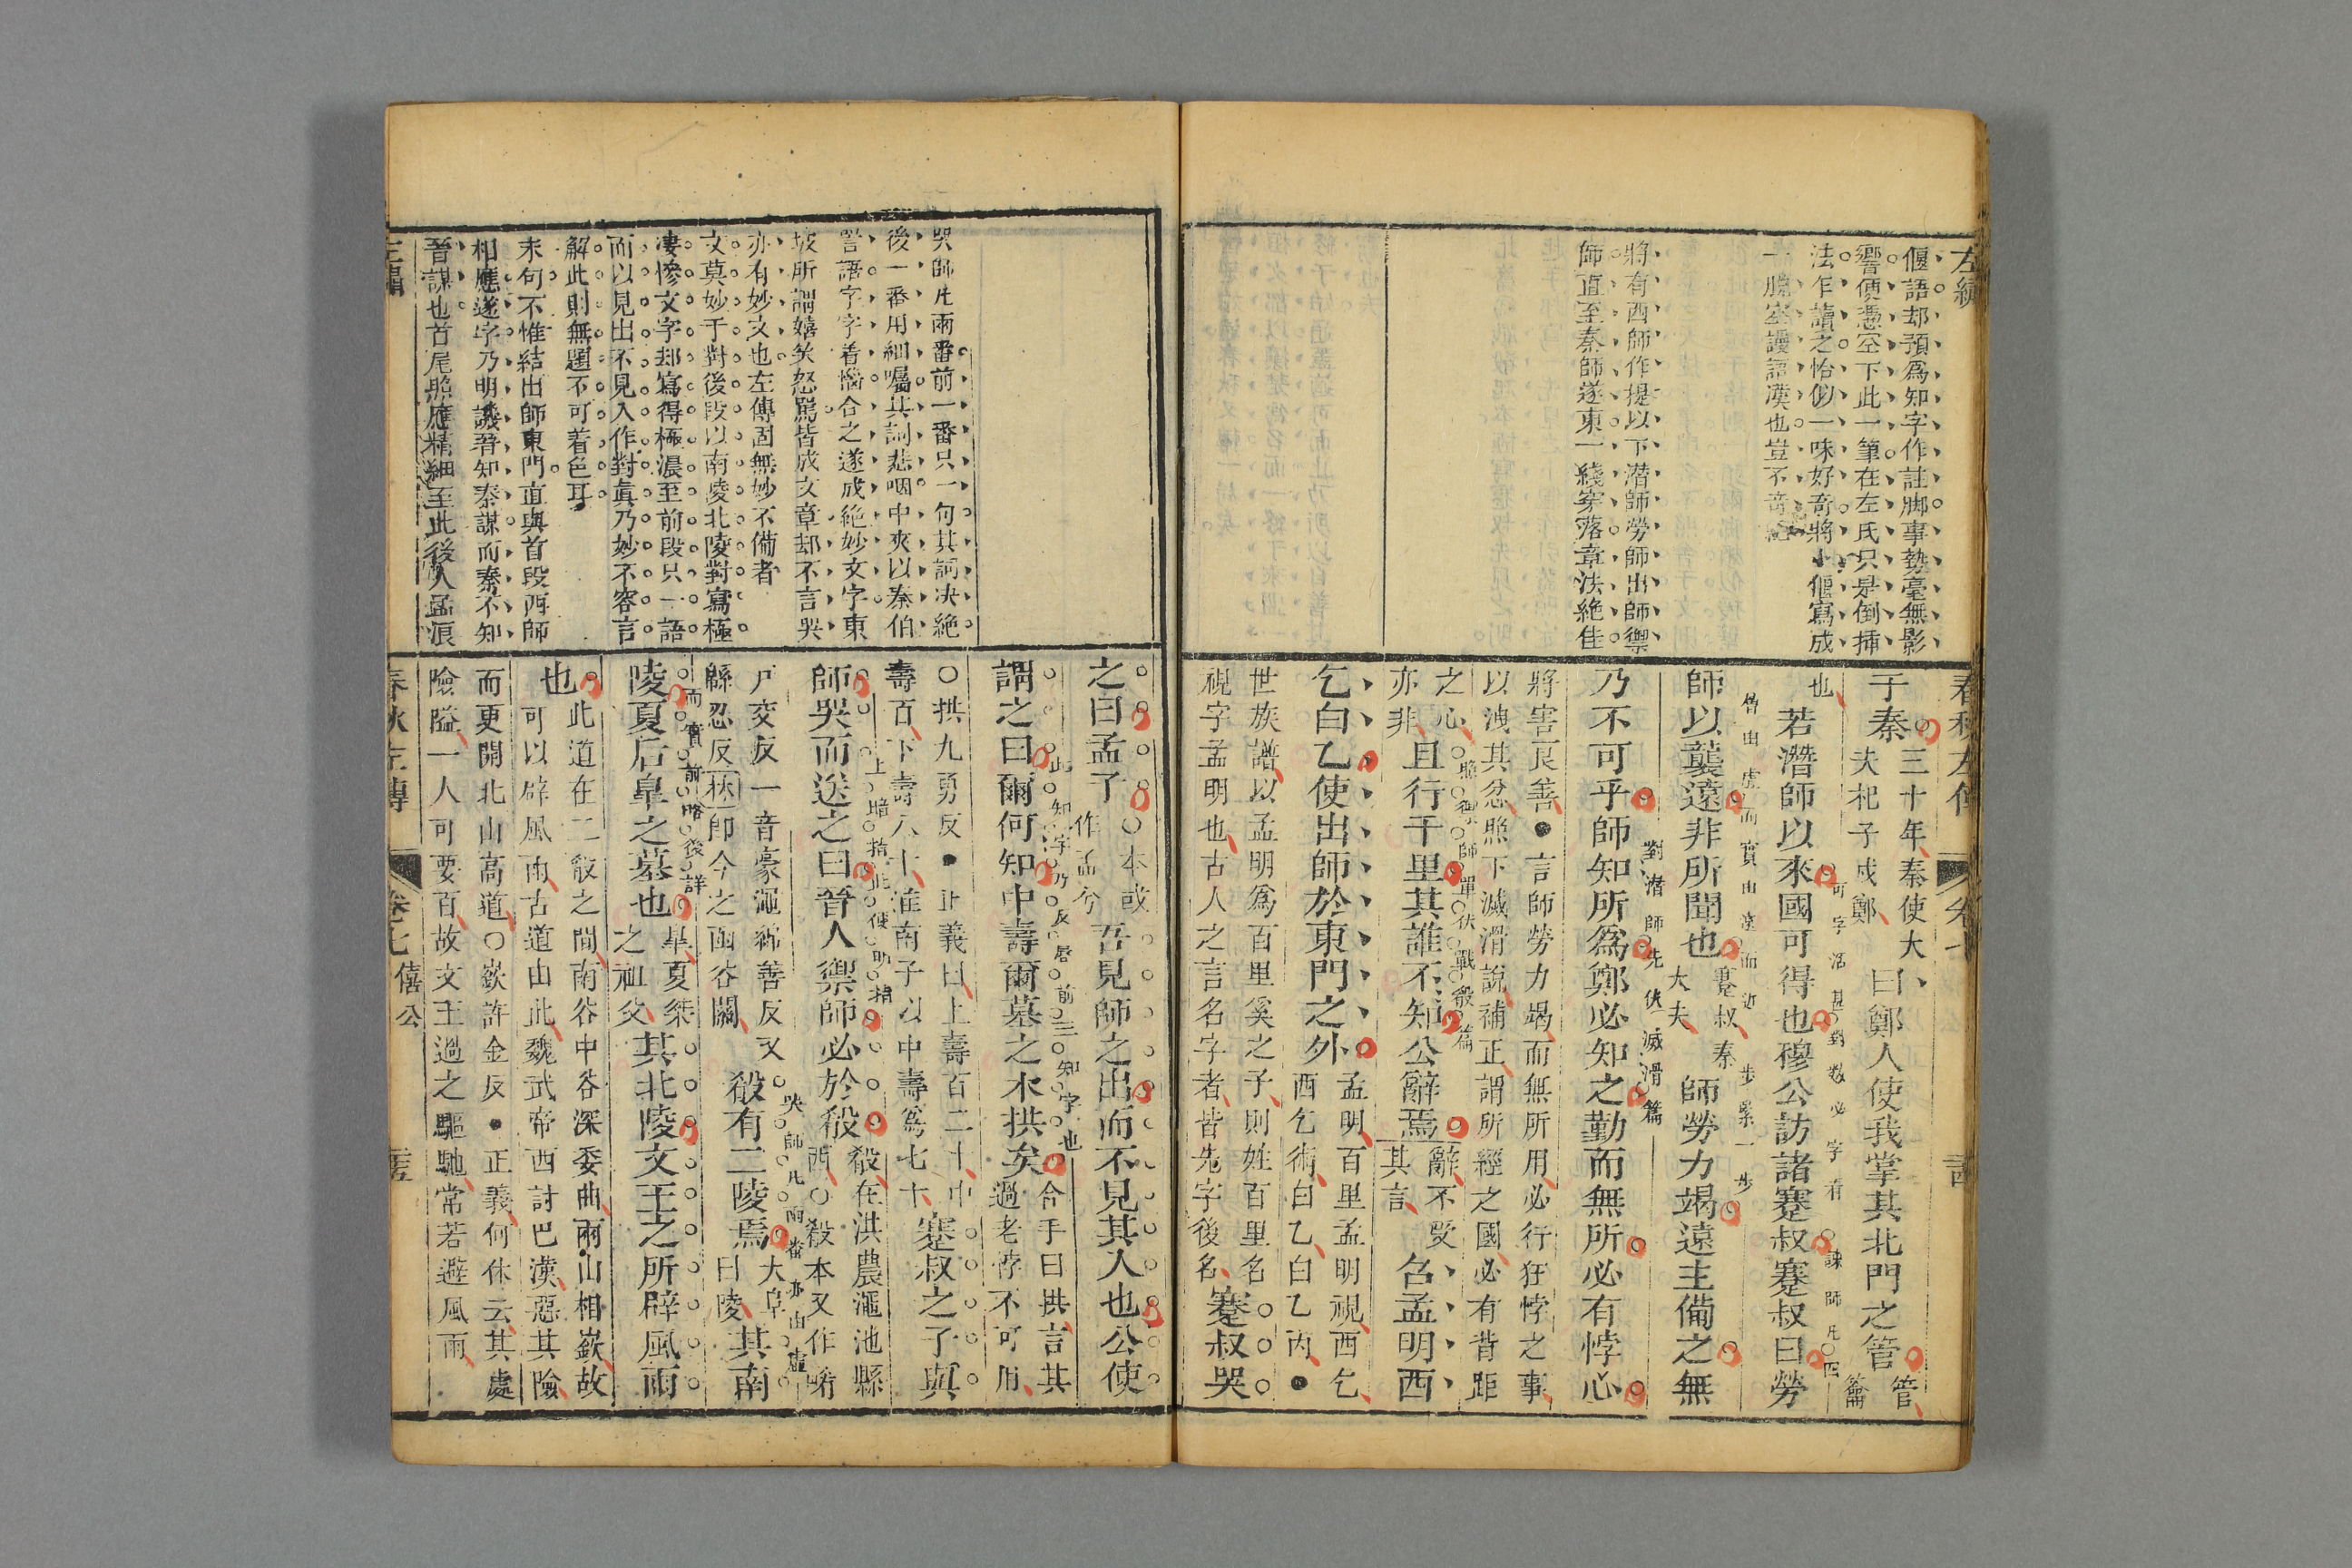 左繡
偃語却預爲知字作註脚事勢毫無影
響便憑空下此一筆在左氏只是倒插
法乍讀之恰似一味好奇將卜偃寫成
一朦空謾語漢也豈不奇絶
將有西師作提以下潛師勞師出師禦
師直至秦師遂東一綫穿落章法絶佳
春秋左傳 卷七
于秦三十年秦使大夫杞子戍鄭曰鄭人使我掌其北門之管管籥
也若潛師以來國可得也穆公訪諸蹇叔蹇叔曰勞
可字活甚對數必字看○諫師凡○四
層由虛而實由遠而近步緊一步
師以襲遠非所聞也蹇叔秦大夫師勞力竭遠主備之無
對潛師先伏滅滑篇
乃不可乎師知所爲鄭必知之勤而無所必有悖心
將害良善●言師勞力竭而無所用必行狂悖之事
以洩其忿照下滅滑説補正謂所經之國必有背距
照禦師單伏戰殽篇
之心亦非且行千里其誰不知公辭焉辭不受其言召孟明西
乞白乙使出師於東門之外孟明百里孟明視西乞西乞術白乙白乙丙●
世族譜以孟明爲百里奚之子則姓百里名
視字孟明也古人之言名字者皆先字後名蹇叔哭
哭師凡兩番前一番只一句其詞决絶
後一番用細囑其詞悲咽中夾以秦伯
詈語字字着惱合之遂成絶妙文字東
坡所謂嬉笑怒罵皆成文章却不言哭
亦有妙文也左傳固無妙不備者
文莫妙于對後段以南陵北陵對寫極
凄慘文字却寫得極濃至前段只一語
而以見出不見入作對眞乃妙不容言
解此則無題不可着色耳
末句不惟結出師東門直與首段西師
相應遂字乃明譏晉知秦謀而秦不知
晉謀也首尾照應精細至此後人孟浪
之曰孟子○本或作孟兮吾見師之出而不見其入也公使
此知字乃反唇前三知字也
謂之曰爾何知中壽爾墓之木拱矣合手曰拱言其過老悖不可用
○拱九勇反●正義曰上壽百二十中
壽百下壽八十淮南子以中壽爲七十蹇叔之子與
上暗指此使明指
師哭而送之曰晉人禦師必於殽殽在洪農澠池縣西○殽本又作崤
哭師凡兩番亦由虛
戸交反一音豪澠綿善反又
緜忍反林即今之函谷關殽有二陵焉大阜曰陵其南
而實前略後詳
陵夏后皐之墓也皐夏桀之祖父其北陵文王之所辟風雨
也此道在二殽之間南谷中谷深委曲兩山相嶔故
可以辟風雨古道由此魏武帝西討巴漢惡其險
而更開北山高道○嶔許金反●正義何休云其處
險隘一人可要百故文王過之驅馳常若避風雨
左繡
春秋左傳 卷七 僖公